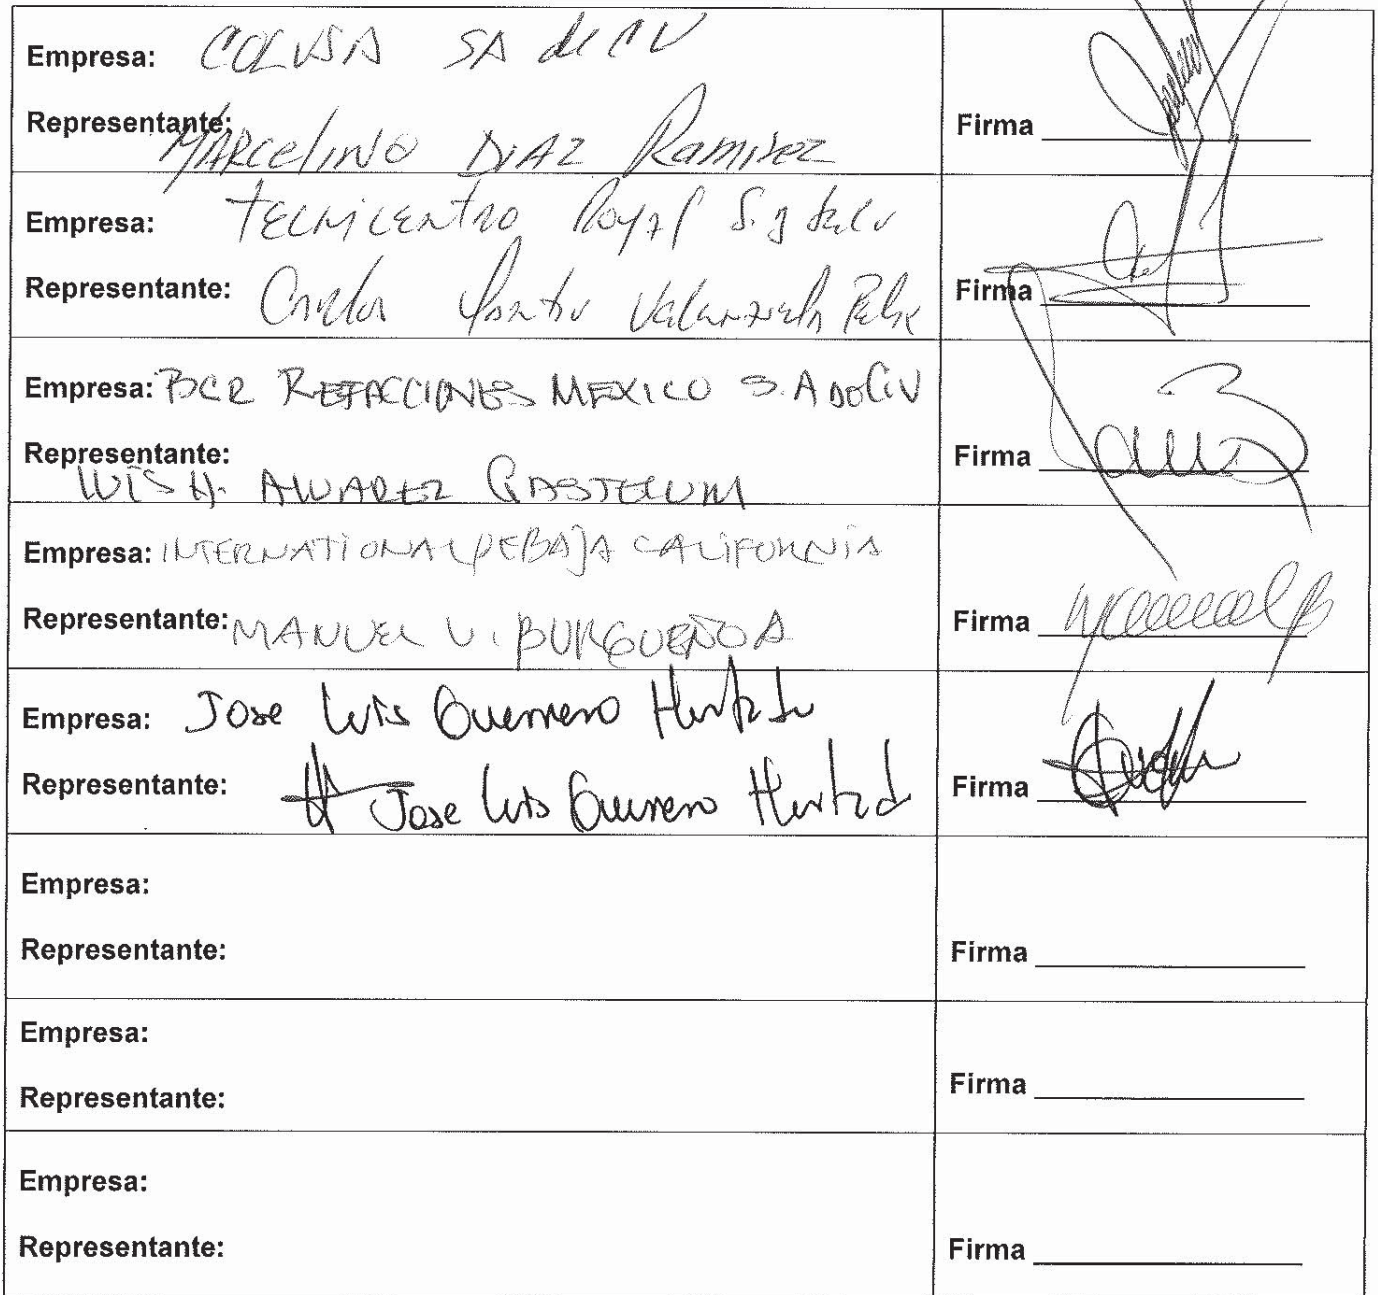 Empresa: COLVSA SA de CV
Representante: MARCelINO DiAZ Ramirez
Firma
Empresa: TECNICENTRO Royal S.A de CV
Representante: Carlos Santos Valenzuela
Firma
Empresa: BCR REFACCIONES MEXICO S.A DE CV
Representante: LUIS H. ALVAREZ GASTELUM
Firma
Empresa: INTERNATIONAL DE BAJA CALIFORNIA
Representante: MANUEL V. BURGUEÑO A
Firma
Empresa: Jose Luis Guerrero Hurtado
Representante: Jose Luis Guerrero Hurtado
Firma
Empresa:
Representante:
Firma
Empresa:
Representante:
Firma
Empresa:
Representante:
Firma